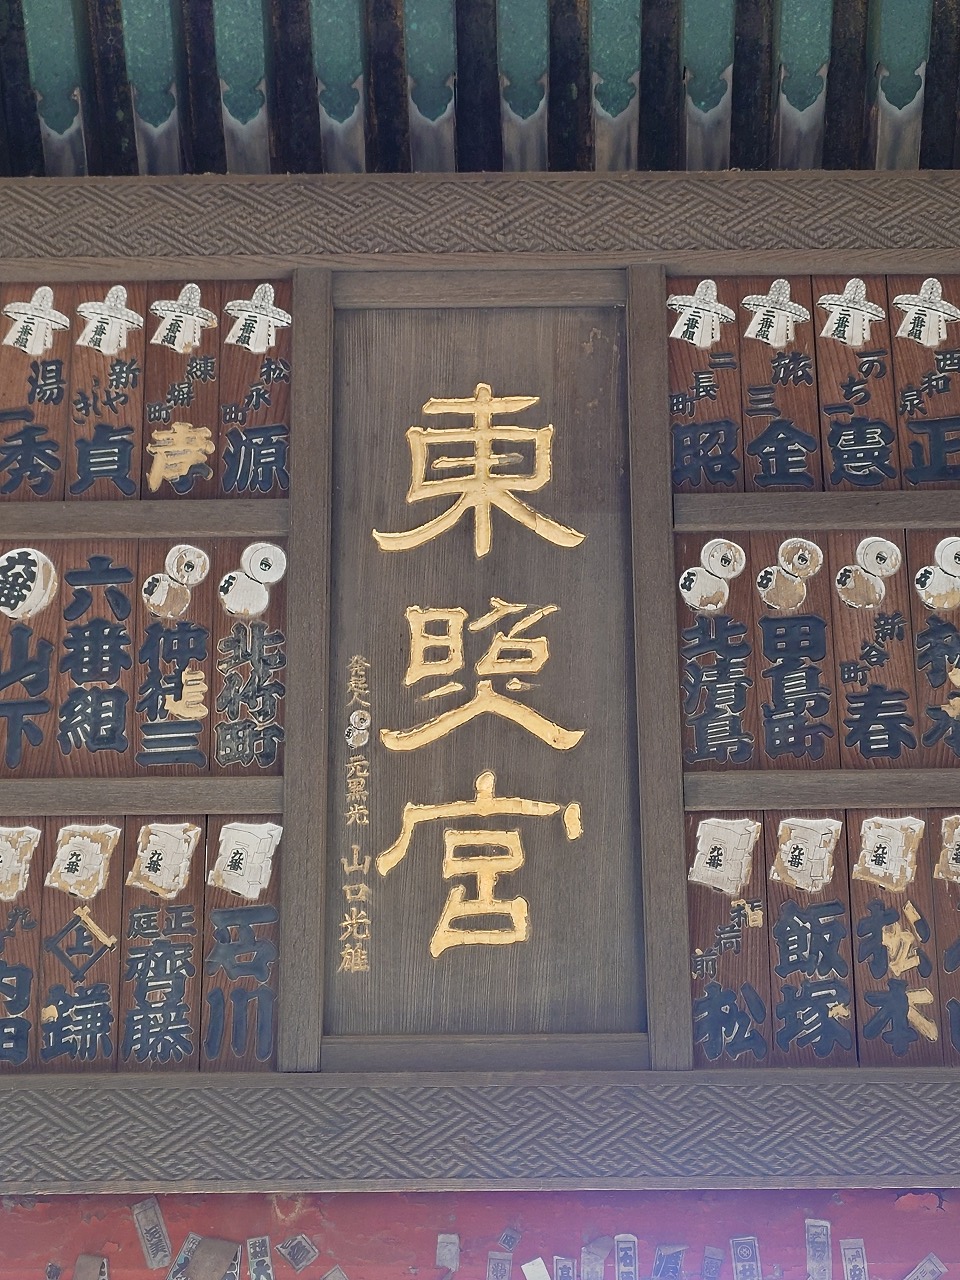 東照宮
発起人 元黒光 山口光雄
西和泉 正
三番組 のち一憲
三番組 旅三 金
三番組 二長町 昭
三番組 松永町 源
三番組 練塀町 孝
三番組 新やしき 貞
三番組 湯一 秀
五 新谷町 春
五 田島町
五 北清島
五 北竹町
仲徒三
六番組
六番 山下
九番 松本
九番 飯塚
九番 稲荷前 松
九番 石川
九番 正庭 齊藤
九番 上 鎌